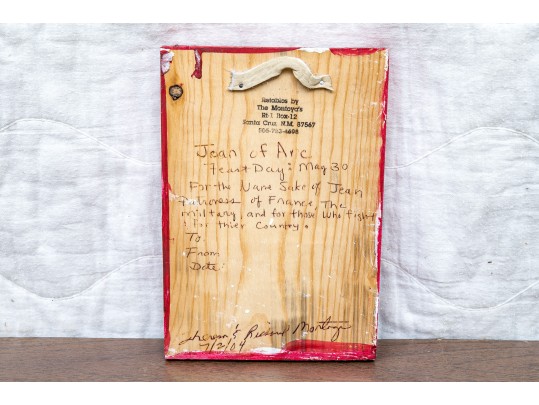 Retablos by
The Montoya's
Rt 1 Box-12
Santa Cruz N.M. 87567
505-753-4608
Jean of Arc
Feast Day: May 30
For the Name Sake of Jean
Patroness of France, The
military, and for those who fight
for thier Country.
To
From
Date:
& Richard Montoya
7/2/04